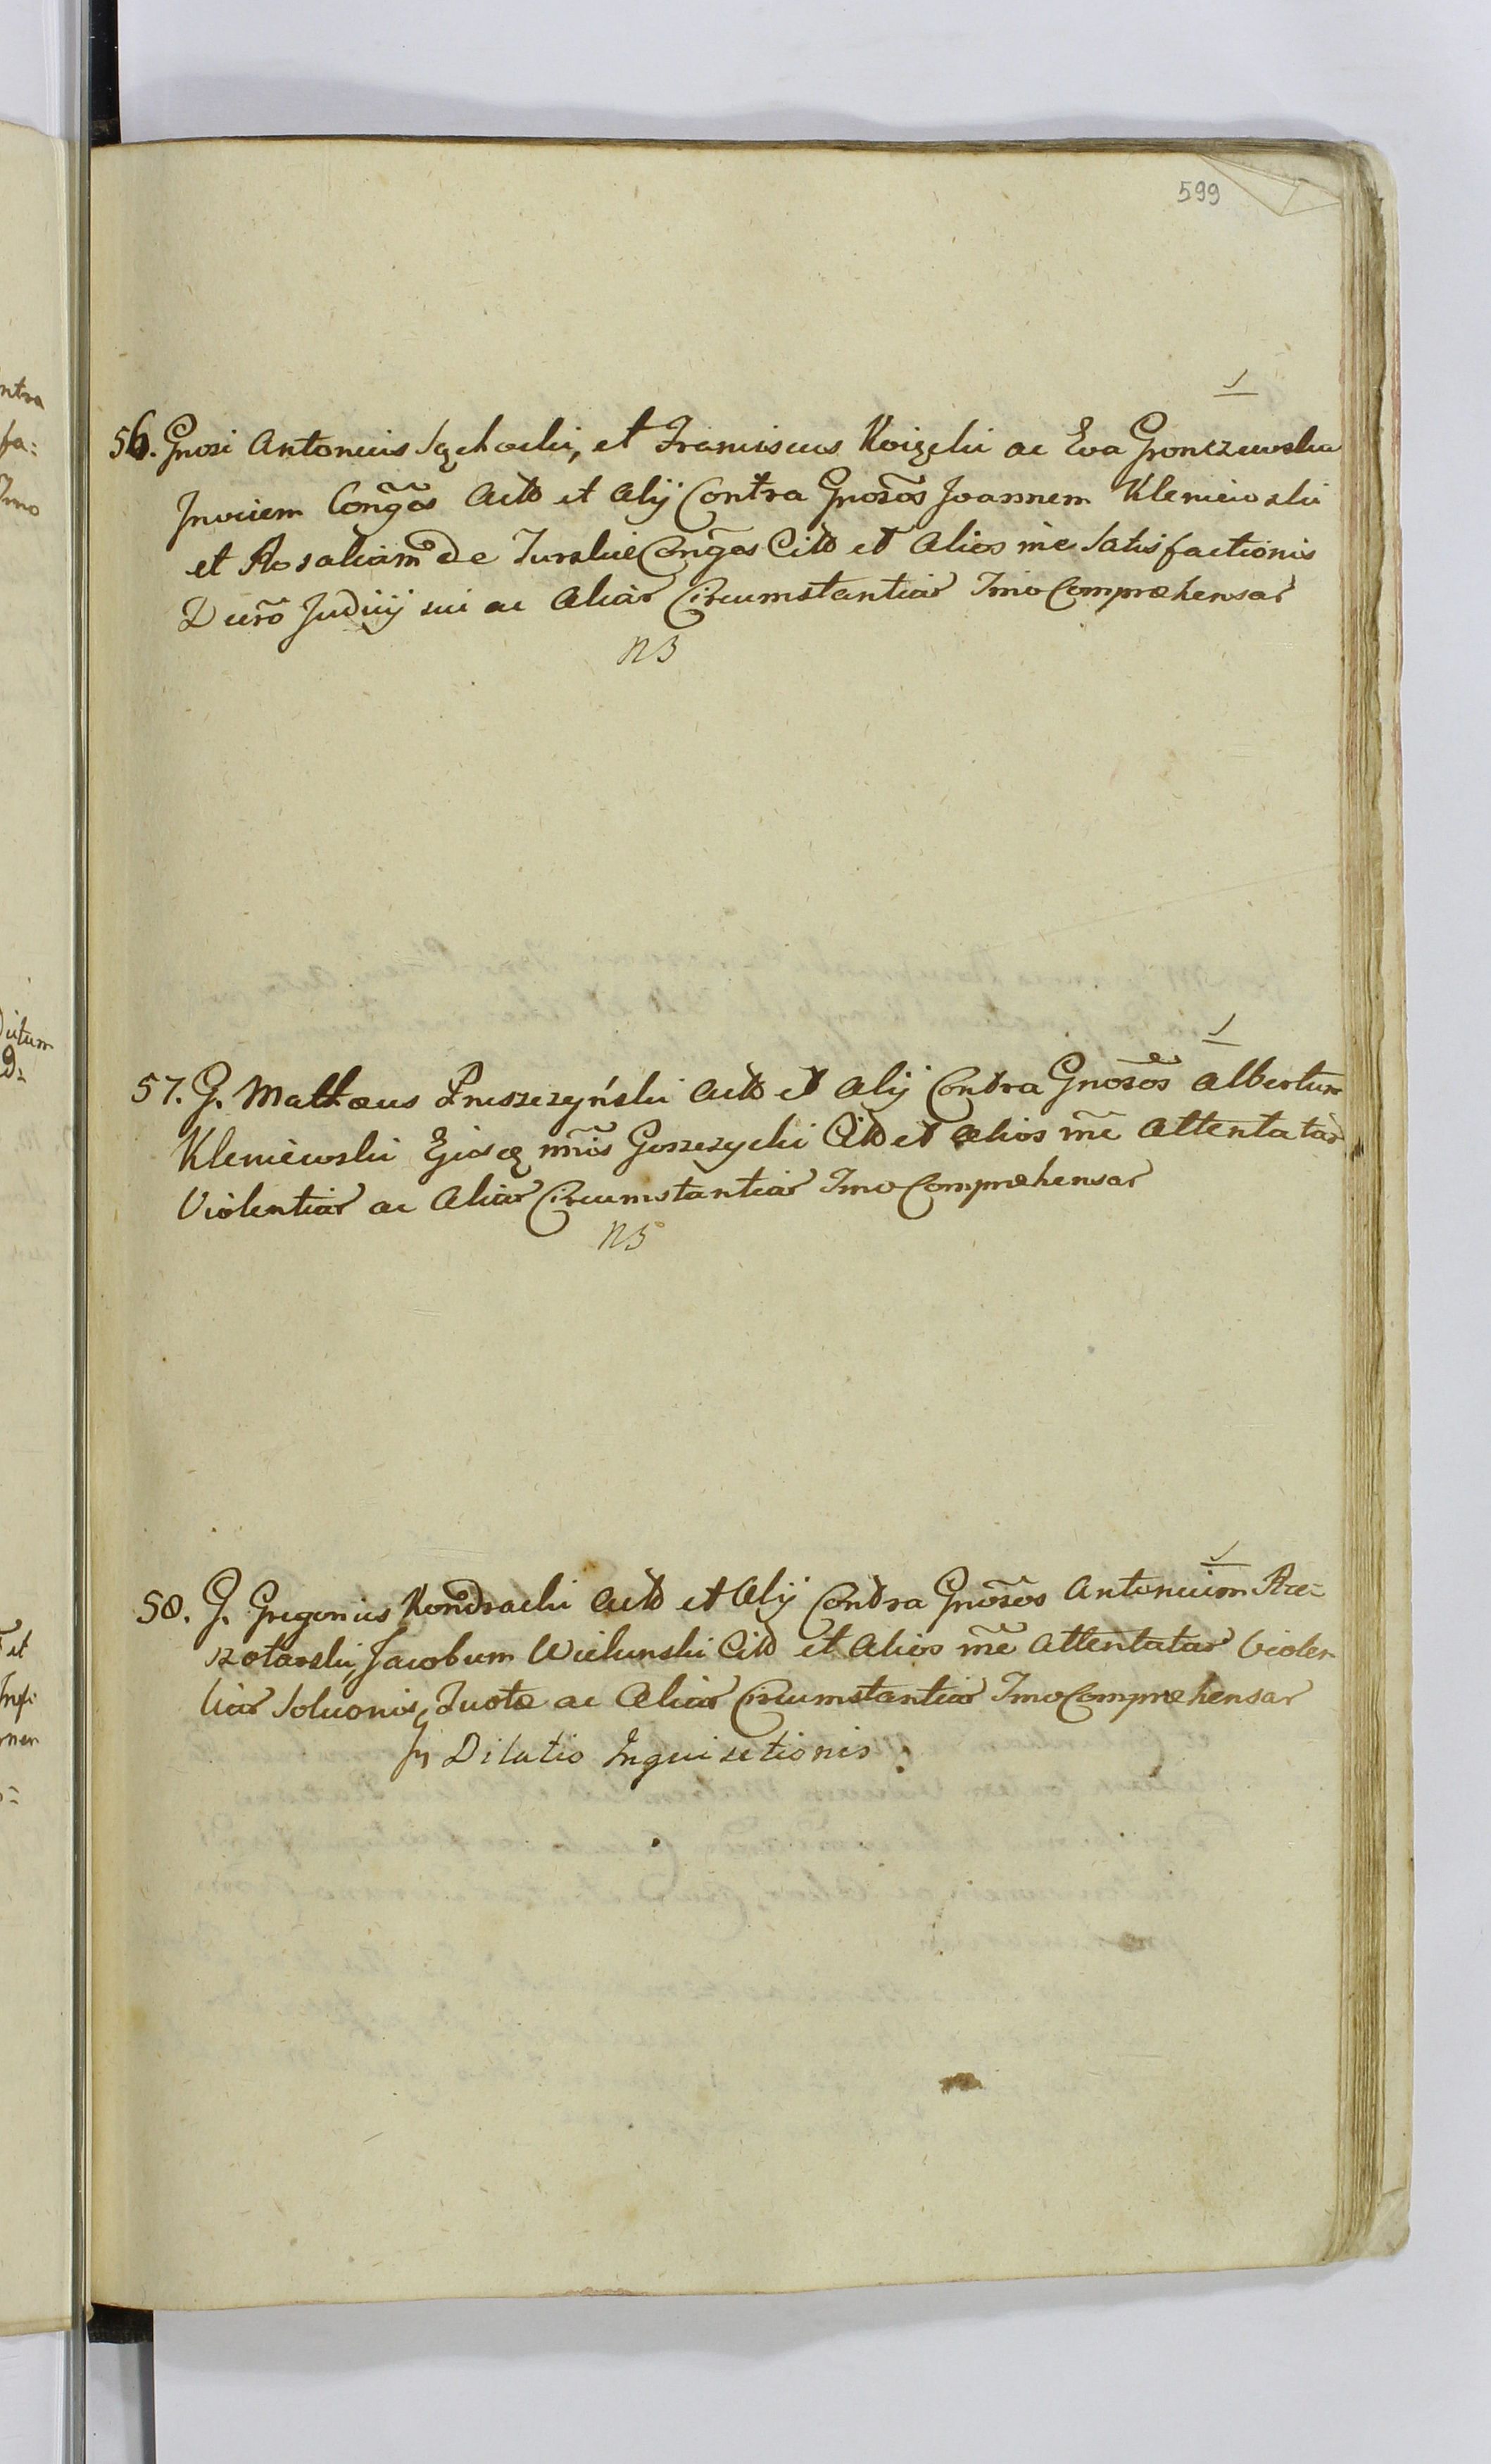 599
56. Gnosi Antonius Szchacki, et Franciscus Koizelii ac Eva Gronczewska
Invicem Congẽs Actõ et Alij Contra Gnosõs Joannem Kleniewski
et Rosaliam de Turskie Congẽs Citõ et Alios mẽ Satisfactionis
Decrõ Judicij sui ac Aliar Circumstantiar Imo Compræhensar
NB
57. G. Mathæus Pruszczyński Actõ et Alij Contra Gnosõs Albertum
Kleniewski Ejusq mnõs Goszczycki Citõ et Alios mẽ Attentatar
Violentiar ac Aliar Circumstantiar Imo Compræhensar
NB
58. G. Gregorius Kondracki Actõ et Alij Contra Gnosõs Antonium Rze=
szotarski, Jacobum Wielunski Citõ et Alios mẽ Attentatar Violen
tiar Soluonis, Quotæ ac Aliar Circumstantiar Imo Compræhensar
Dilatio Inquisitionis.
ntra
fa:
Imo
Dictum
et